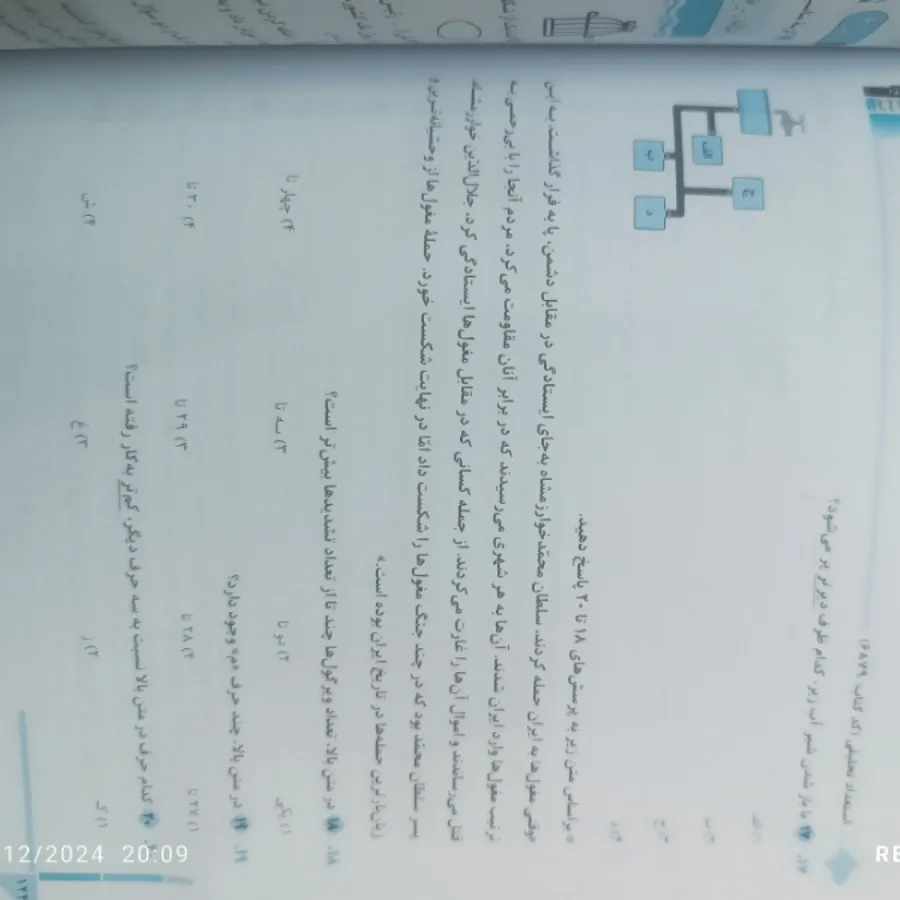 استعداد تحلیلی (کد کتاب: ۶۸۷۹)
۱۷. با باز شدن شیر آب زیر، کدام ظرف دیرتر پر می‌شود؟
۱) الف
۲) ب
۳) ج
۴) د
الف
ب
ج
د
براساس متن زیر به پرسش‌های ۱۸ تا ۲۰ پاسخ دهید.
«وقتی مغول‌ها به ایران حمله کردند، سلطان محمّد خوارزمشاه به‌جای ایستادگی در مقابل دشمن، پا به فرار گذاشت. به این
ترتیب مغول‌ها وارد ایران شدند. آن‌ها به هر شهری می‌رسیدند که در برابر آنان مقاومت می‌کرد، مردم آنجا را با بی‌رحمی به
قتل می‌رساندند و اموال آن‌ها را غارت می‌کردند. از جمله کسانی که در مقابل مغول‌ها ایستادگی کرد، جلال‌الدّین خوارزمشاه
پسر سلطان محمّد بود که در چند جنگ مغول‌ها را شکست داد امّا در نهایت شکست خورد. حملهٔ مغول‌ها از وحشیانه‌ترین و
زیان‌بارترین حمله‌ها در تاریخ ایران بوده است.»
۱۸. در متن بالا، تعداد ویرگول‌ها چند تا از تعداد تشدیدها بیش‌تر است؟
۱) یکی
۲) دو تا
۳) سه تا
۴) چهار تا
۱۹. در متن بالا، چند حرف «م» وجود دارد؟
۱) ۲۷ تا
۲) ۲۸ تا
۳) ۲۹ تا
۴) ۳۰ تا
۲۰. کدام حرف در متن بالا نسبت به سه حرف دیگر، کم‌تر به‌کار رفته است؟
۱) ک
۲) ز
۳) غ
۴) ش
12/2024 20:09
RE